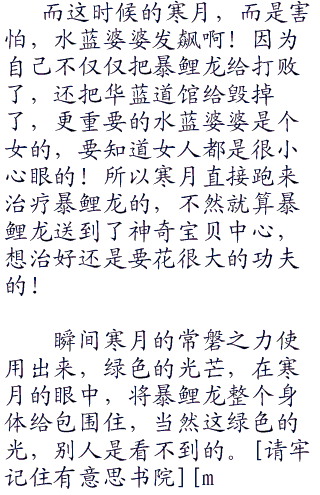 而这时候的寒月，而是害
怕，水蓝婆婆发飙啊！因为
自己不仅仅把暴鲤龙给打败
了，还把华蓝道馆给毁掉
了，更重要的水蓝婆婆是个
女的，要知道女人都是很小
心眼的！所以寒月直接跑来
治疗暴鲤龙的，不然就算暴
鲤龙送到了神奇宝贝中心，
想治好还是要花很大的功夫
的！
瞬间寒月的常磐之力使
用出来，绿色的光芒，在寒
月的眼中，将暴鲤龙整个身
体给包围住，当然这绿色的
光，别人是看不到的。[请牢
记住有意思书院][m